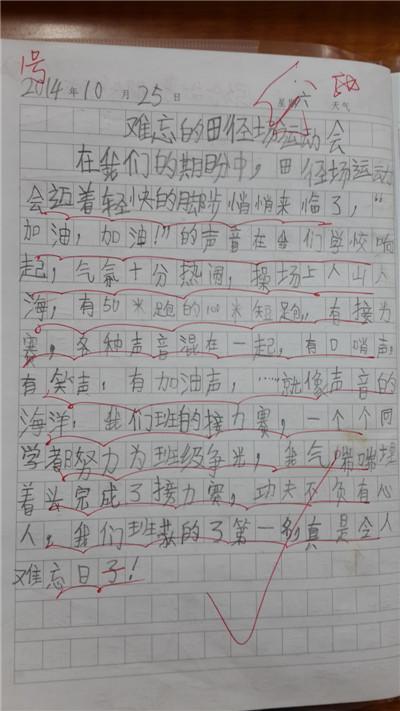 号
2014年10月25日 星期六 天气
难忘的田径场运动会
在我们的期盼中，田径场运动
会迈着轻快的脚步悄悄来临了，“
加油，加油！”的声音在我们学校响
起，气氛十分热闹，操场上人山人
海，有50米跑的100米短跑，有接力
赛，各种声音混在一起，有口哨声，
有笑声，有加油声，……就像声音的
海洋，我们班的接力赛，一个个同
学都努力为班级争光，我气喘喘
着头完成了接力赛，功夫不负有心
人，我们班获的了第一名真是令人
难忘日子！